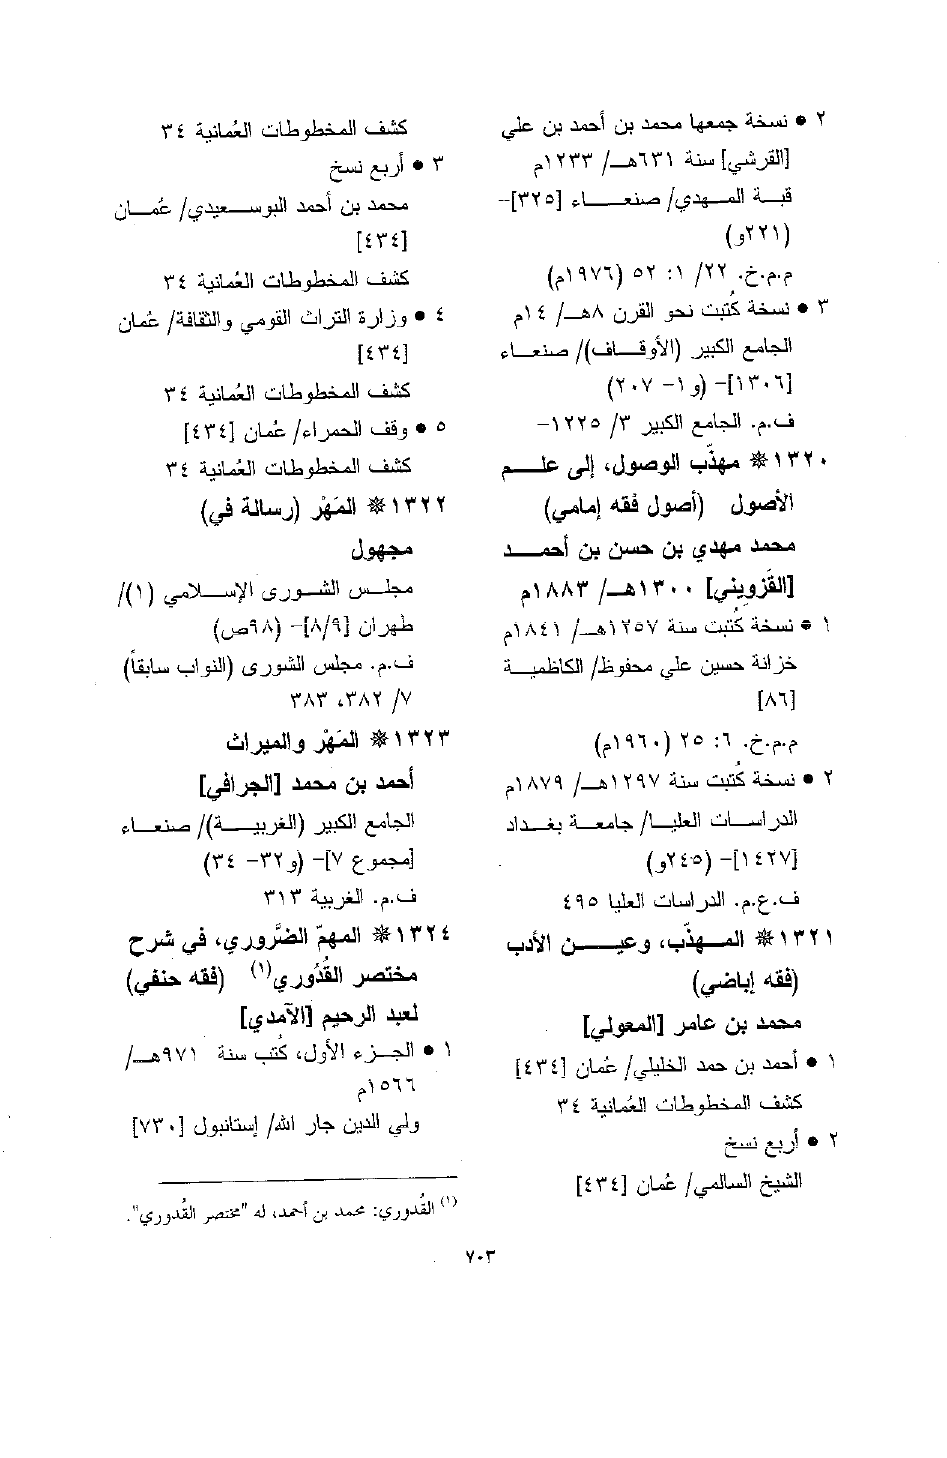 ٢ • نسخة جمعها محمد بن أحمد بن علي
[القرشي] سنة ٦٣١هـ/ ١٢٣٣م
قبة المهدي/ صنعاء [٣٢٥]-
(٢٢١و)
م.م.خ. ٢٢/ ١: ٥٢ (١٩٧٦م)
٣ • نسخة كُتبت نحو القرن ٨هـ/ ١٤م
الجامع الكبير (الأوقاف)/ صنعاء
[١٣٠٦]- (و١- ٢٠٧)
ف.م. الجامع الكبير ٣/ ١٢٢٥-
١٣٢٠❋ مهذّب الوصول، إلى علم
الأصول (أصول فقه إمامي)
محمد مهدي بن حسن بن أحمد
[القَزويني] ١٣٠٠هـ/ ١٨٨٣م
١ • نسخة كُتبت سنة ١٢٥٧هـ/ ١٨٤١م
خزانة حسين علي محفوظ/ الكاظمية
[٨٦]
م.م.خ. ٦: ٢٥ (١٩٦٠م)
٢ • نسخة كُتبت سنة ١٢٩٧هـ/ ١٨٧٩م
الدراسات العليا/ جامعة بغداد
[١٤٢٧]- (٢٤٥و)
ف.ع.م. الدراسات العليا ٤٩٥
١٣٢١❋ المهذّب، وعين الأدب
(فقه إباضي)
محمد بن عامر [المعولي]
١ • أحمد بن حمد الخليلي/ عُمان [٤٣٤]
كشف المخطوطات العُمانية ٣٤
٢ • أربع نسخ
الشيخ السالمي/ عُمان [٤٣٤]
كشف المخطوطات العُمانية ٣٤
٣ • أربع نسخ
محمد بن أحمد البوسعيدي/ عُمان
[٤٣٤]
كشف المخطوطات العُمانية ٣٤
٤ • وزارة التراث القومي والثقافة/ عُمان
[٤٣٤]
كشف المخطوطات العُمانية ٣٤
٥ • وقف الحمراء/ عُمان [٤٣٤]
كشف المخطوطات العُمانية ٣٤
١٣٢٢❋ المَهْر (رسالة في)
مجهول
مجلس الشورى الإسلامي (١)/
طهران [٨/٩]- (٩٨ص)
ف.م. مجلس الشورى (النواب سابقاً)
٧/ ٣٨٢، ٣٨٣
١٣٢٣❋ المَهْر والميراث
أحمد بن محمد [الجرافي]
الجامع الكبير (الغربية)/ صنعاء
[مجموع ٧]- (و٣٢- ٣٤)
ف.م. الغربية ٣١٣
١٣٢٤❋ المهمّ الضَّروري، في شرح
مختصر القُدُوري(١) (فقه حنفي)
لعبد الرحيم [الآمدي]
١ • الجزء الأول، كُتب سنة ٩٧١هـ/
١٥٦٦م
ولي الدين جار الله/ إستانبول [٧٣٠]
(١) القُدوري: محمد بن أحمد، له "مختصر القُدوري".
٧٠٣